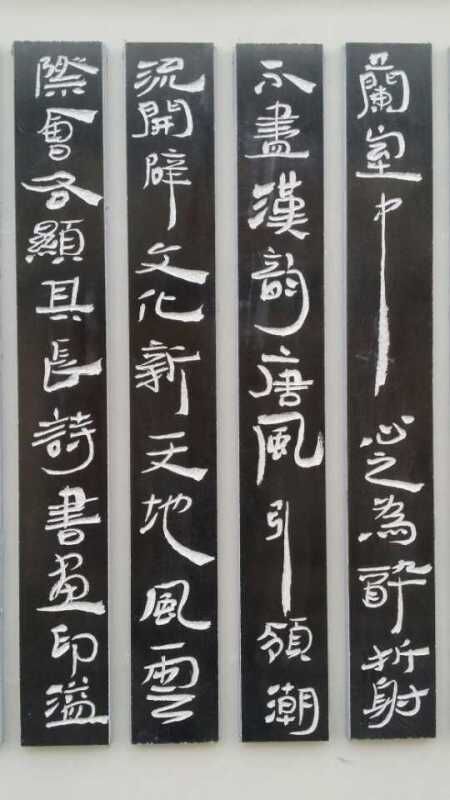 蘭室中心之為醉折射
不盡漢韵唐風引領潮
流開辟文化新天地風雲
際會各顯其長詩書画印溢